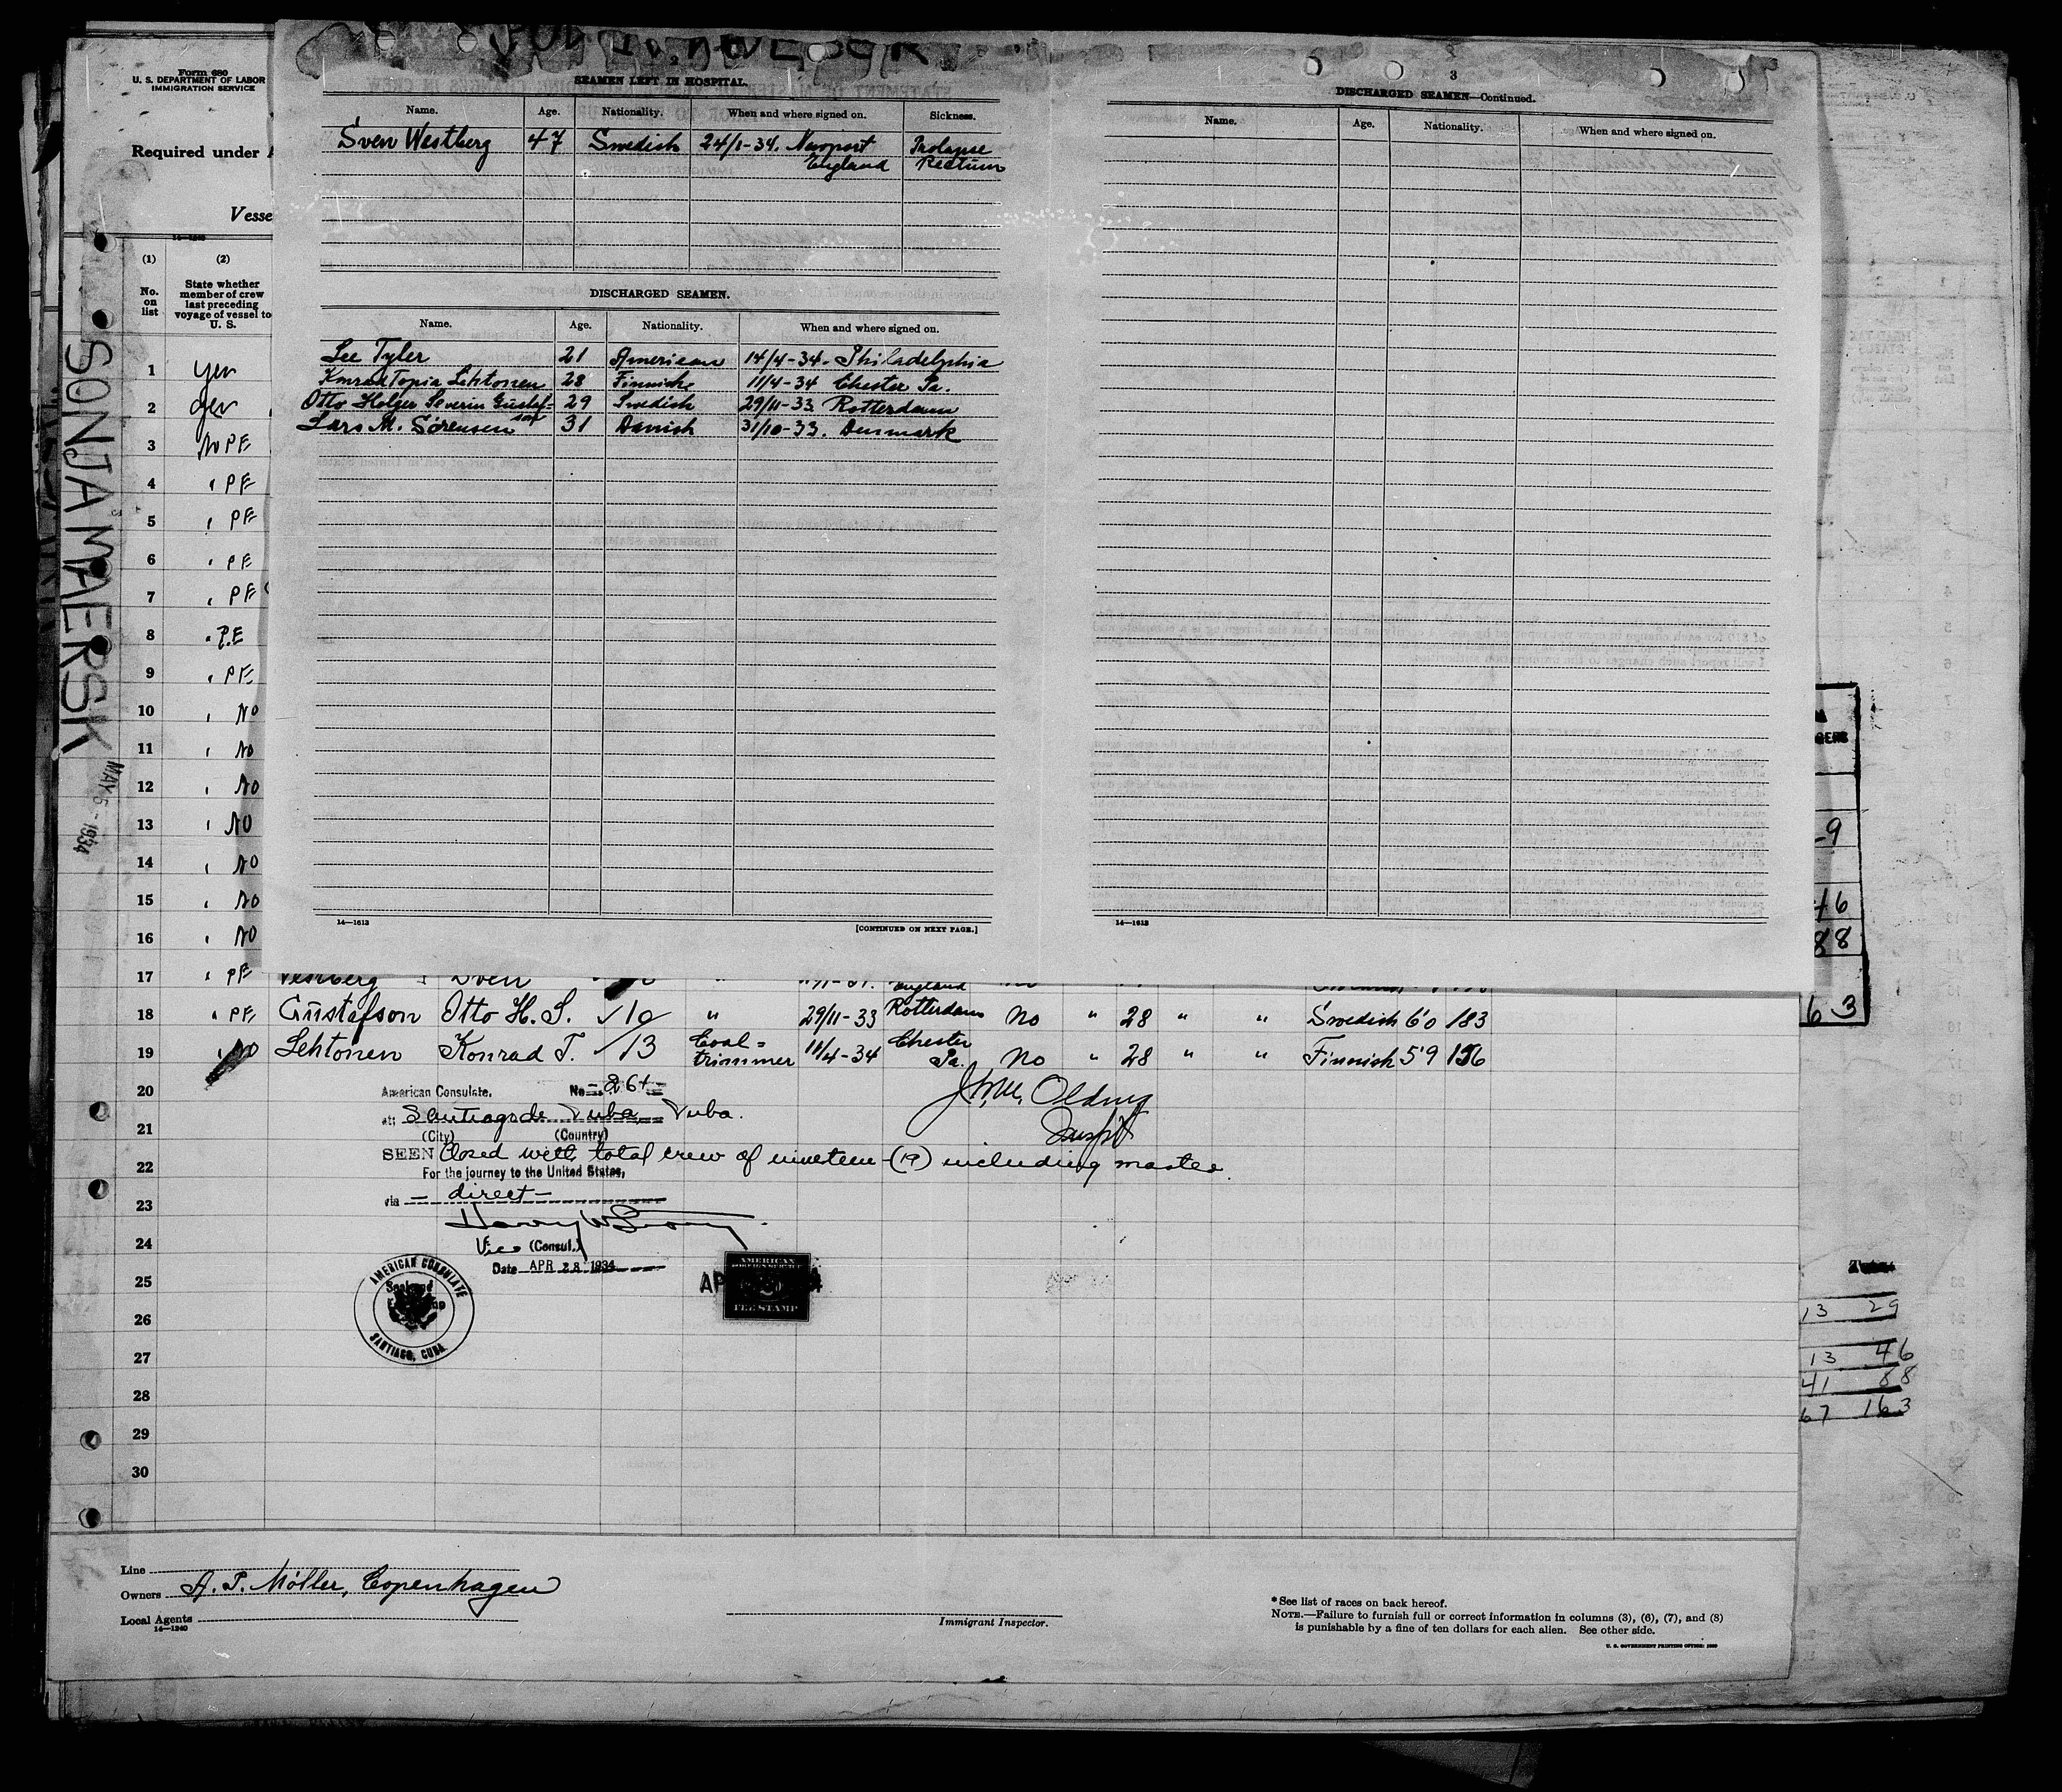 Form 680
U. S. DEPARTMENT OF LABOR
IMMIGRATION SERVICE
Required under
Vesse
(1) (2)
No. on list
State whether member of crew last preceding voyage of vessel to U. S.
SONJA MAERSK
MAY 5 - 1934
1 yes
2 yes
3 No PE
4 " PE
5 " PE
6 " PE
7 " PE
8 " P.E
9 " PE
10 " NO
11 " NO
12 " NO
13 " NO
14 " NO
15 " NO
16 " NO
2
SEAMEN LEFT IN HOSPITAL.
Name. Age. Nationality. When and where signed on. Sickness.
Sven Westberg 47 Swedish 24/1-34. Newport England Prolapse Rectum
DISCHARGED SEAMEN.
Name. Age. Nationality. When and where signed on.
Lee Tyler 21 American 14/4-34. Philadelphia
Konrad Topia Lehtonen 28 Finnish 11/4-34 Chester Pa.
Otto Holger Severin Gustaf=son 29 Swedish 29/11-33 Rotterdam
Lars M. Sörensen 31 Danish 31/10-33. Denmark
14—1613
[CONTINUED ON NEXT PAGE.]
3
DISCHARGED SEAMEN—Continued.
Name. Age. Nationality. When and where signed on.
14—1613
17 " PE Vestberg Sven England
18 " PE Gustafson Otto H. S. ✓10 " 29/11-33 Rotterdam No " 28 " " Swedish 6'0 183
19 " NO Lehtonen Konrad T. ✓13 Coal=trimmer 11/4-34 Chester Pa. No " 28 " " Finnish 5'9 156
20
21
22
23
24
25
26
27
28
29
30
American Consulate. No. 264
at: Santiago de Cuba, Cuba.
(City) (Country)
SEEN Closed with total crew of nineteen (19) including master.
For the journey to the United States,
via — direct —
Vice (Consul.)
Date APR 28 1934
AMERICAN CONSULATE
SANTIAGO, CUBA
AMERICAN
FOREIGN SERVICE
FEE STAMP
Insp't
GERS
-9
46
88
63
13 29
13 46
41 88
67 163
Line
Owners A. P. Möller, Copenhagen
Local Agents
14—1240
Immigrant Inspector.
* See list of races on back hereof.
NOTE.—Failure to furnish full or correct information in columns (3), (6), (7), and (8)
is punishable by a fine of ten dollars for each alien. See other side.